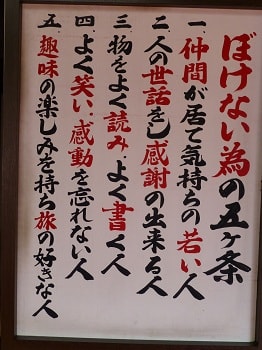 ぼけない為の五ヶ条
一、仲間が居て気持ちの若い人
二、人の世話をし感謝の出来る人
三、物をよく読み、よく書く人
四、よく笑い、感動を忘れない人
五、趣味の楽しみを持ち旅の好きな人